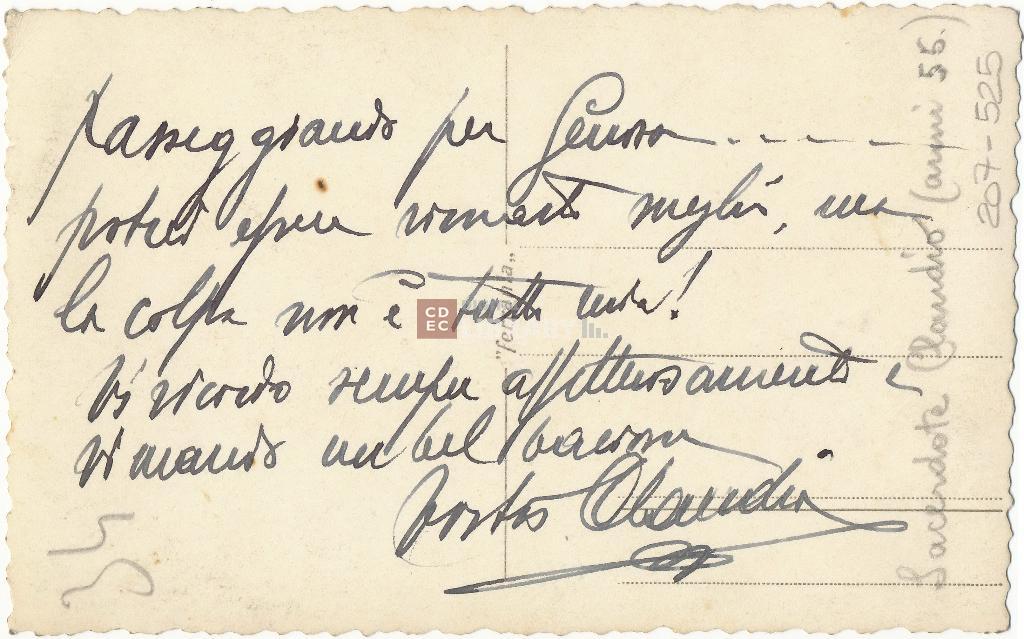 Passeggiando per Genova - - - - -
potrei esser rimasto meglio, ma
la colpa non è tutta mia!
Vi ricordo sempre affettuosamente e
vi mando un bel bacione
vostro Claudio
"ferrania"
CDEC
Sacerdote Claudio (anni 55.)
207-525
34